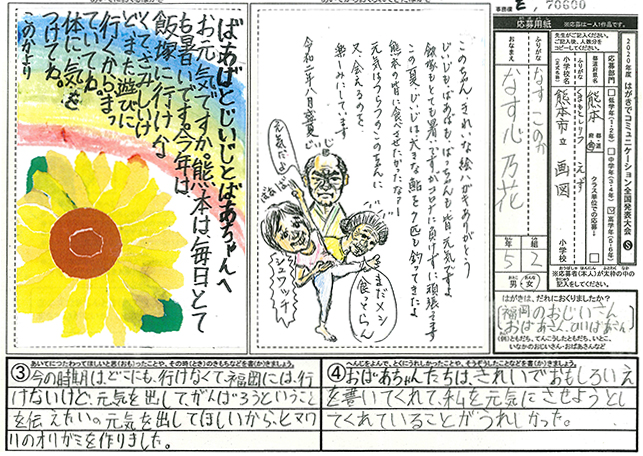 ばあばとじいじとばあちゃんへ
お元気ですか。熊本は、毎日とて
も暑いです。今年は、
飯塚に行けな
くてさみしいけ
ど、また遊びに
行くからまっ
ていてね。
体に気を
つけてね。
このかより
このちゃん きれいな絵ハガキありがとう
じいじもばあばもばぁちゃんも皆元気ですよ
飯塚もとても暑いですがコロナに負けずに頑張ります
この夏じいじは大きな鮎を9匹も釣ってきたよ
熊本の皆に食べさせたかったなァー
元気はつらつこのちゃんに
又会えるのを
楽しみにしています
令和二年八月盛夏
じいじ
ばあば
元気だよー
シュワッチ
まだメシ
食っとらん
70600
応募用紙
※応募は一人1作品です。
2020年度 はがきでコミュニケーション全国発表大会
応募部門
低学年(1・2年)
中学年(3・4年)
高学年(5・6年)
クラス単位での応募
都道府県名
熊本
都・道
府・県
小学校名
(正式名称)
ふりがな
熊本市立 画図
小学校
おなまえ
ふりがな
なす このか
なす 心乃花
5年
2組
男・女
※応募者(本人)が太枠の中の
記入をしてください。
はがきは、だれにおくりましたか?
福岡のおじいさん
おばあさん、ひいばあさん
(例)ともだち、てんこうしたともだち、いとこ、
いなかのおじいさん・おばあさんなど
③今の時期は、どこにも、行けなくて、福岡には、行
けないけど、元気を出して、がんばろうということ
を伝えたい。元気を出してほしいから、ヒマワ
リのオリガミを作りました。
④おばあちゃんたちは、きれいでおもしろいえ
を書いてくれて、私を元気にさせようとし
てくれていることがうれしかった。